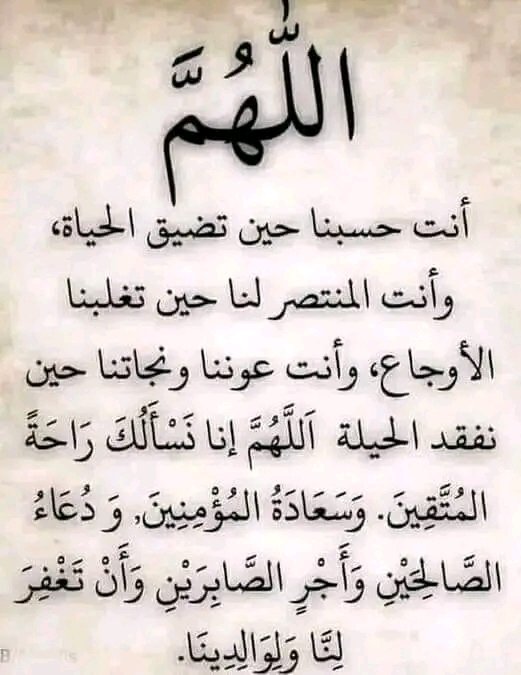 اللّٰهُمَّ
أنت حسبنا حين تضيق الحياة،
وأنت المنتصر لنا حين تغلبنا
الأوجاع، وأنت عوننا ونجاتنا حين
نفقد الحيلة اَللَّهُمَّ إنا نَسْأَلُكَ رَاحَةً
المُتَّقِينَ. وَسَعَادَةُ المُؤْمِنِينَ, وَ دُعَاءُ
الصَّالِحَيْنِ وَأَجْرٍ الصَّابِرَيْنِ وَأَنْ تَغْفِرَ
لِنَّا وَلِوَالِدِينَا.